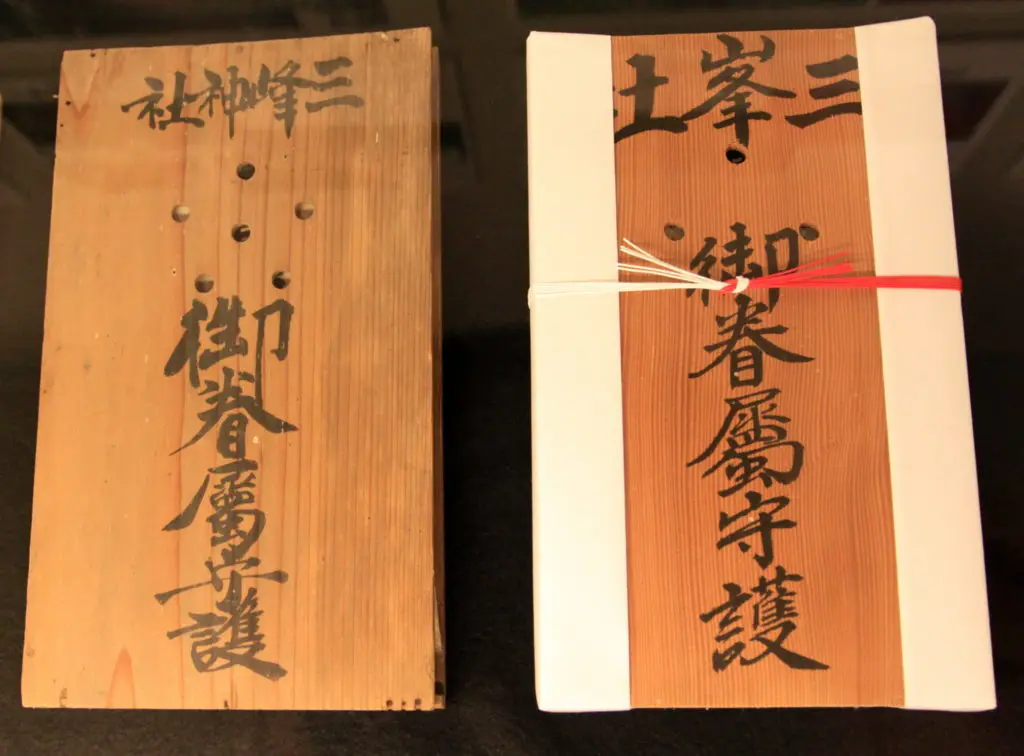 三峰神社
御眷屬守護
三峯社
御眷屬守護